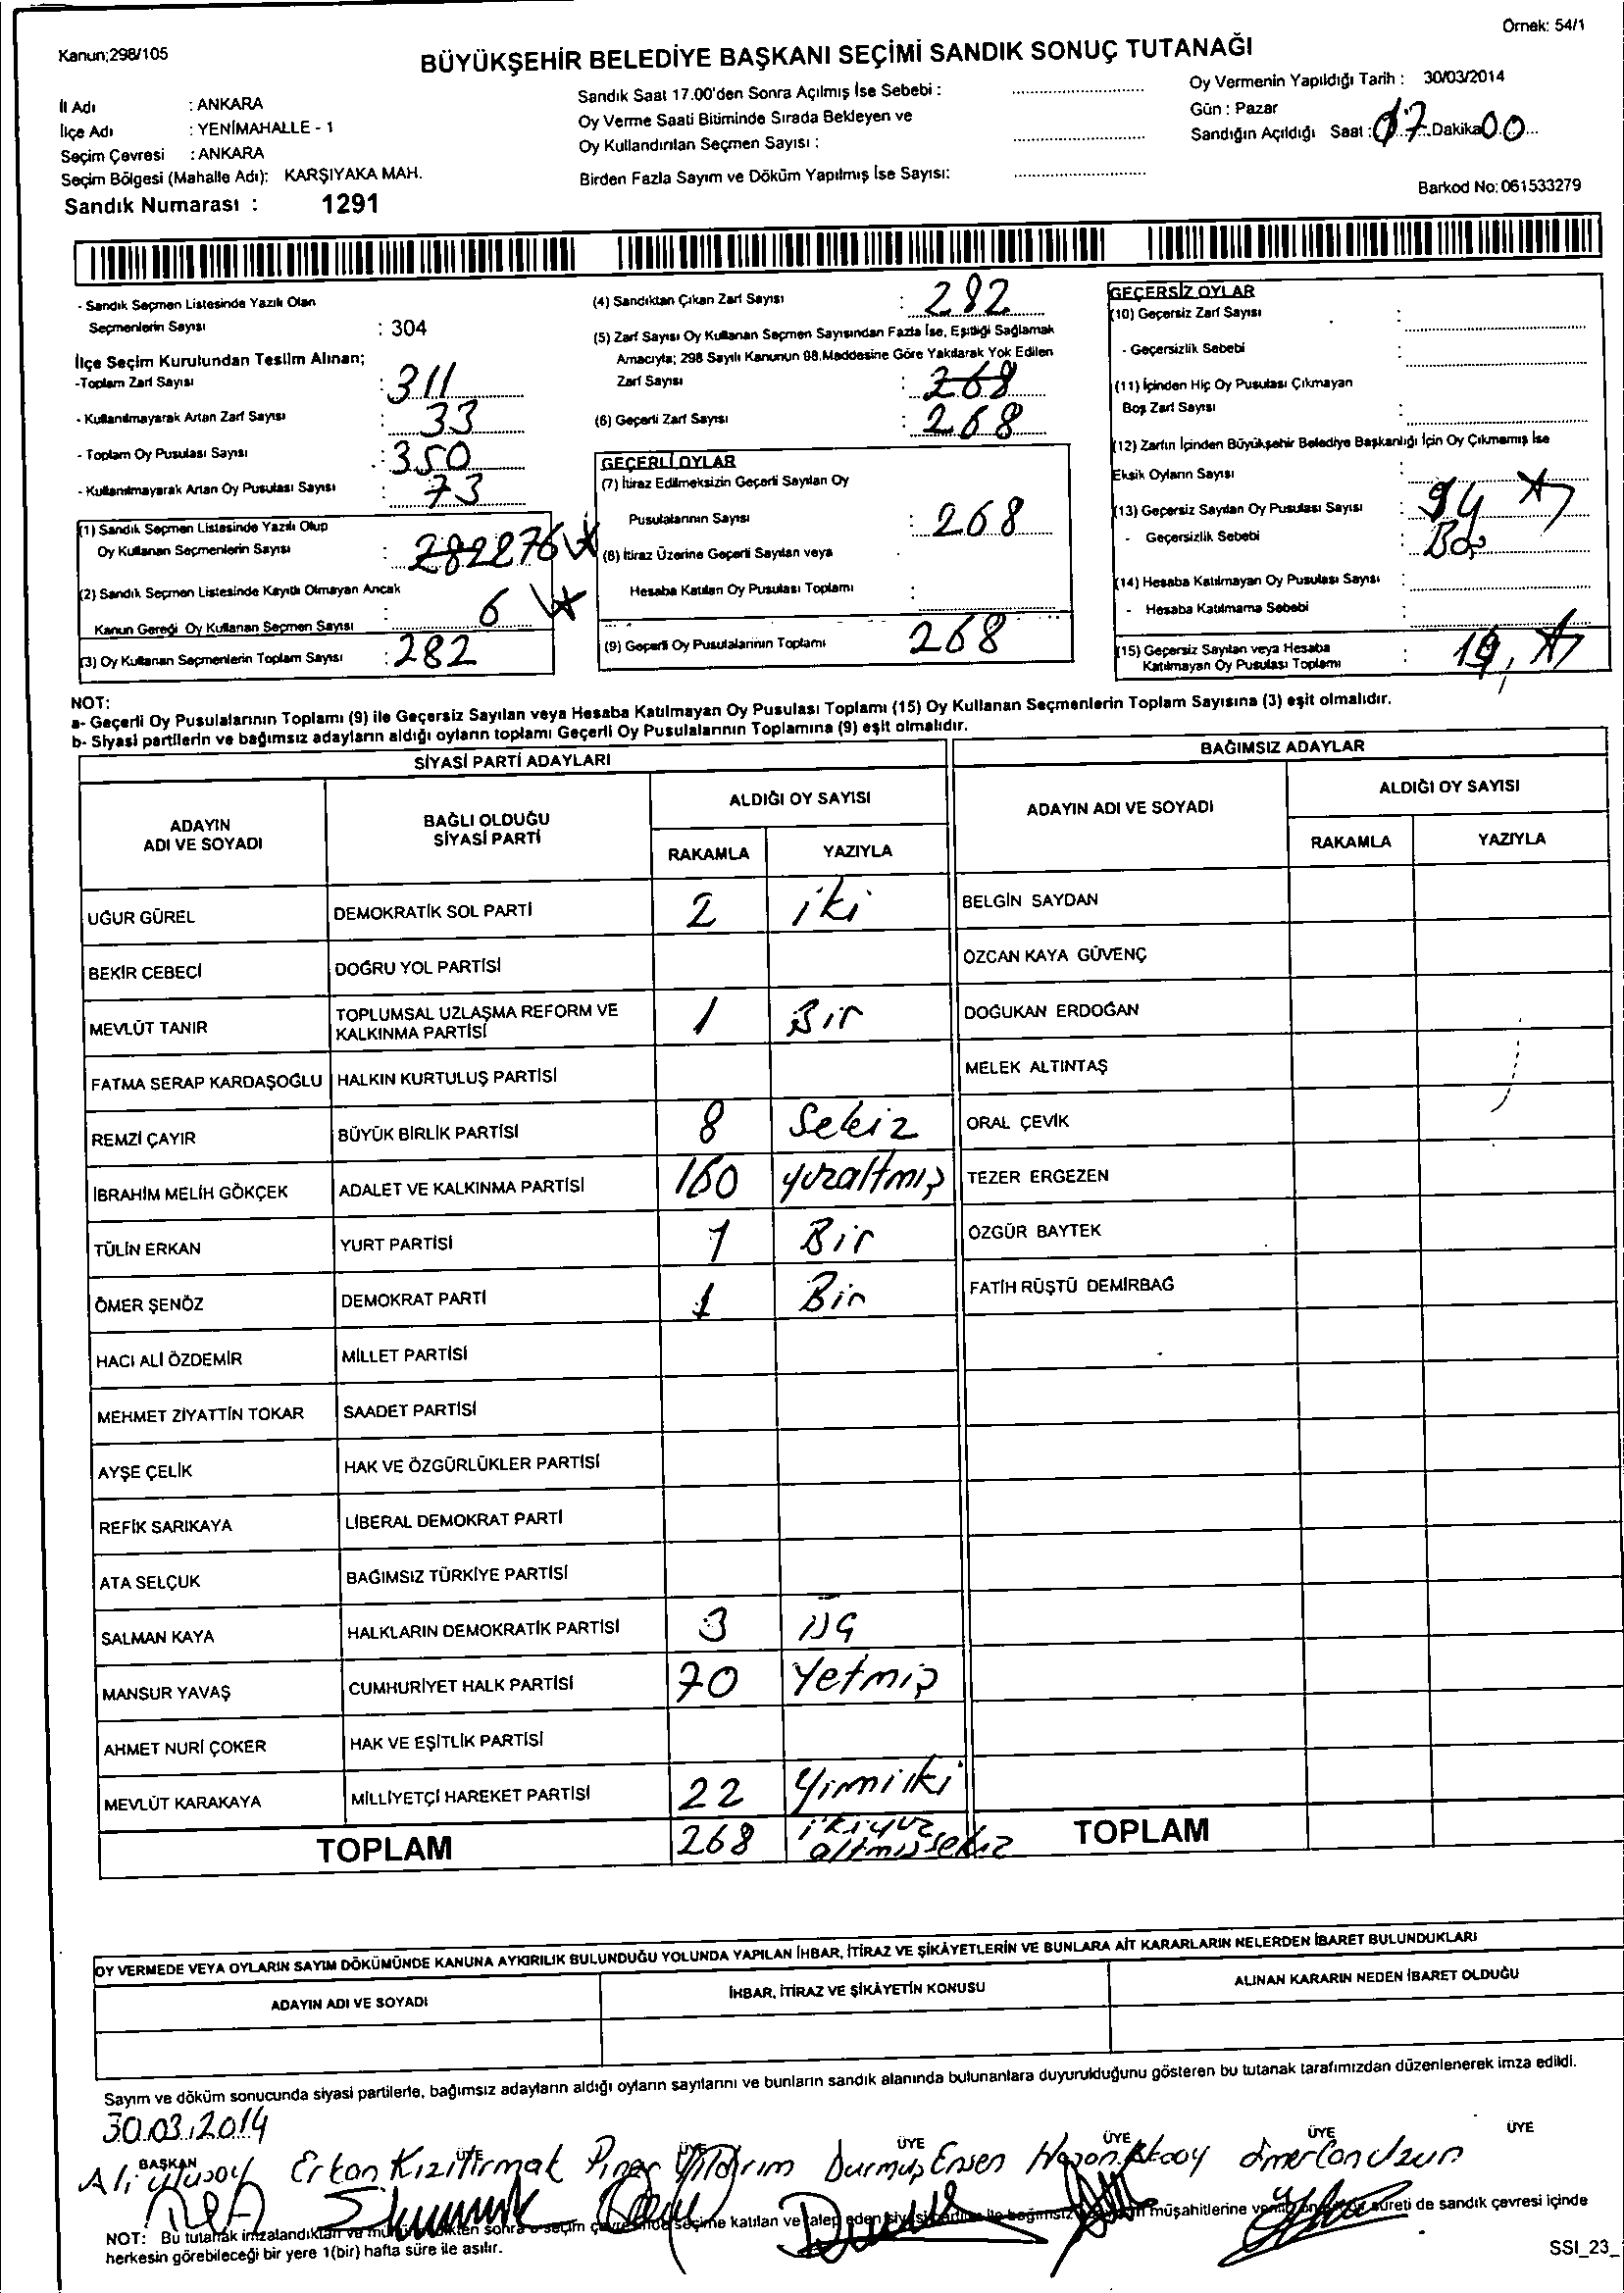 Örnek: 54/1
Kanun;298/105
BÜYÜKŞEHİR BELEDİYE BAŞKANI SEÇİMİ SANDIK SONUÇ TUTANAĞI
İl Adı : ANKARA
İlçe Adı : YENİMAHALLE - 1
Seçim Çevresi : ANKARA
Seçim Bölgesi (Mahalle Adı): KARŞIYAKA MAH.
Sandık Numarası : 1291
Sandık Saat 17.00'den Sonra Açılmış İse Sebebi :
Oy Verme Saati Bitiminde Sırada Bekleyen ve
Oy Kullandırılan Seçmen Sayısı :
Birden Fazla Sayım ve Döküm Yapılmış İse Sayısı:
Oy Vermenin Yapıldığı Tarih : 30/03/2014
Gün : Pazar
Sandığın Açıldığı Saat : 17 Dakika 00
Barkod No: 061533279
- Sandık Seçmen Listesinde Yazılı Olan
Seçmenlerin Sayısı : 304
İlçe Seçim Kurulundan Teslim Alınan;
-Toplam Zarf Sayısı : 311
- Kullanılmayarak Artan Zarf Sayısı : 33
- Toplam Oy Pusulası Sayısı : 350
- Kullanılmayarak Artan Oy Pusulası Sayısı : 73
(1) Sandık Seçmen Listesinde Yazılı Olup
Oy Kullanan Seçmenlerin Sayısı : 282 276
(2) Sandık Seçmen Listesinde Kayıtlı Olmayan Ancak
Kanun Gereği Oy Kullanan Seçmen Sayısı : 6
(3) Oy Kullanan Seçmenlerin Toplam Sayısı : 282
(4) Sandıktan Çıkan Zarf Sayısı : 282
(5) Zarf Sayısı Oy Kullanan Seçmen Sayısından Fazla İse, Eşitliği Sağlamak
Amacıyla; 298 Sayılı Kanunun 98.Maddesine Göre Yakılarak Yok Edilen
Zarf Sayısı : 268
(6) Geçerli Zarf Sayısı : 268
GEÇERLİ OYLAR
(7) İtiraz Edilmeksizin Geçerli Sayılan Oy
Pusulalarının Sayısı : 268
(8) İtiraz Üzerine Geçerli Sayılan veya
Hesaba Katılan Oy Pusulası Toplamı :
(9) Geçerli Oy Pusulalarının Toplamı 268
GEÇERSİZ OYLAR
(10) Geçersiz Zarf Sayısı :
- Geçersizlik Sebebi :
(11) İçinden Hiç Oy Pusulası Çıkmayan
Boş Zarf Sayısı :
(12) Zarfın İçinden Büyükşehir Belediye Başkanlığı İçin Oy Çıkmamış İse
Eksik Oyların Sayısı :
(13) Geçersiz Sayılan Oy Pusulası Sayısı :
- Geçersizlik Sebebi :
(14) Hesaba Katılmayan Oy Pusulası Sayısı :
- Hesaba Katılmama Sebebi :
(15) Geçersiz Sayılan veya Hesaba
Katılmayan Oy Pusulası Toplamı :
NOT:
a- Geçerli Oy Pusulalarının Toplamı (9) ile Geçersiz Sayılan veya Hesaba Katılmayan Oy Pusulası Toplamı (15) Oy Kullanan Seçmenlerin Toplam Sayısına (3) eşit olmalıdır.
b- Siyasi partilerin ve bağımsız adayların aldığı oyların toplamı Geçerli Oy Pusulalarının Toplamına (9) eşit olmalıdır.
SİYASİ PARTİ ADAYLARI
ADAYIN ADI VE SOYADI BAĞLI OLDUĞU SİYASİ PARTİ ALDIĞI OY SAYISI
RAKAMLA YAZIYLA
UĞUR GÜREL DEMOKRATİK SOL PARTİ 2 iki
BEKİR CEBECİ DOĞRU YOL PARTİSİ
MEVLÜT TANIR TOPLUMSAL UZLAŞMA REFORM VE KALKINMA PARTİSİ 1 Bir
FATMA SERAP KARDAŞOĞLU HALKIN KURTULUŞ PARTİSİ
REMZİ ÇAYIR BÜYÜK BİRLİK PARTİSİ 8 Sekiz
İBRAHİM MELİH GÖKÇEK ADALET VE KALKINMA PARTİSİ 160 yüzaltmış
TÜLİN ERKAN YURT PARTİSİ 1 Bir
ÖMER ŞENÖZ DEMOKRAT PARTİ 1 Bir
HACI ALİ ÖZDEMİR MİLLET PARTİSİ
MEHMET ZİYATTİN TOKAR SAADET PARTİSİ
AYŞE ÇELİK HAK VE ÖZGÜRLÜKLER PARTİSİ
REFİK SARIKAYA LİBERAL DEMOKRAT PARTİ
ATA SELÇUK BAĞIMSIZ TÜRKİYE PARTİSİ
SALMAN KAYA HALKLARIN DEMOKRATİK PARTİSİ 3 üç
MANSUR YAVAŞ CUMHURİYET HALK PARTİSİ 70 Yetmiş
AHMET NURİ ÇOKER HAK VE EŞİTLİK PARTİSİ
MEVLÜT KARAKAYA MİLLİYETÇİ HAREKET PARTİSİ 22 Yirmiiki
TOPLAM 268 ikiyüz altmışsekiz
BAĞIMSIZ ADAYLAR
ADAYIN ADI VE SOYADI ALDIĞI OY SAYISI
RAKAMLA YAZIYLA
BELGİN SAYDAN
ÖZCAN KAYA GÜVENÇ
DOĞUKAN ERDOĞAN
MELEK ALTINTAŞ
ORAL ÇEVİK
TEZER ERGEZEN
ÖZGÜR BAYTEK
FATİH RÜŞTÜ DEMİRBAĞ
TOPLAM
OY VERMEDE VEYA OYLARIN SAYIM DÖKÜMÜNDE KANUNA AYKIRILIK BULUNDUĞU YOLUNDA YAPILAN İHBAR, İTİRAZ VE ŞİKÂYETLERİN VE BUNLARA AİT KARARLARIN NELERDEN İBARET BULUNDUKLARI
ADAYIN ADI VE SOYADI İHBAR, İTİRAZ VE ŞİKÂYETİN KONUSU ALINAN KARARIN NEDEN İBARET OLDUĞU
Sayım ve döküm sonucunda siyasi partilerle, bağımsız adayların aldığı oyların sayılarını ve bunların sandık alanında bulunanlara duyurulduğunu gösteren bu tutanak tarafımızdan düzenlenerek imza edildi.
30.03.2014
BAŞKAN ÜYE ÜYE ÜYE ÜYE ÜYE ÜYE
Ali Ulusoy Erkan Kızılırmak Pınar Yıldırım Durmuş Ensen Hasan Aksoy Ömer Can Uzun
NOT: Bu tutanak imzalandıktan ve mühürlendikten sonra o seçim çevresinde seçime katılan ve talep eden siyasi müşahitlerine sureti de sandık çevresi içinde
herkesin görebileceği bir yere 1(bir) hafta süre ile asılır.
SSI_23_